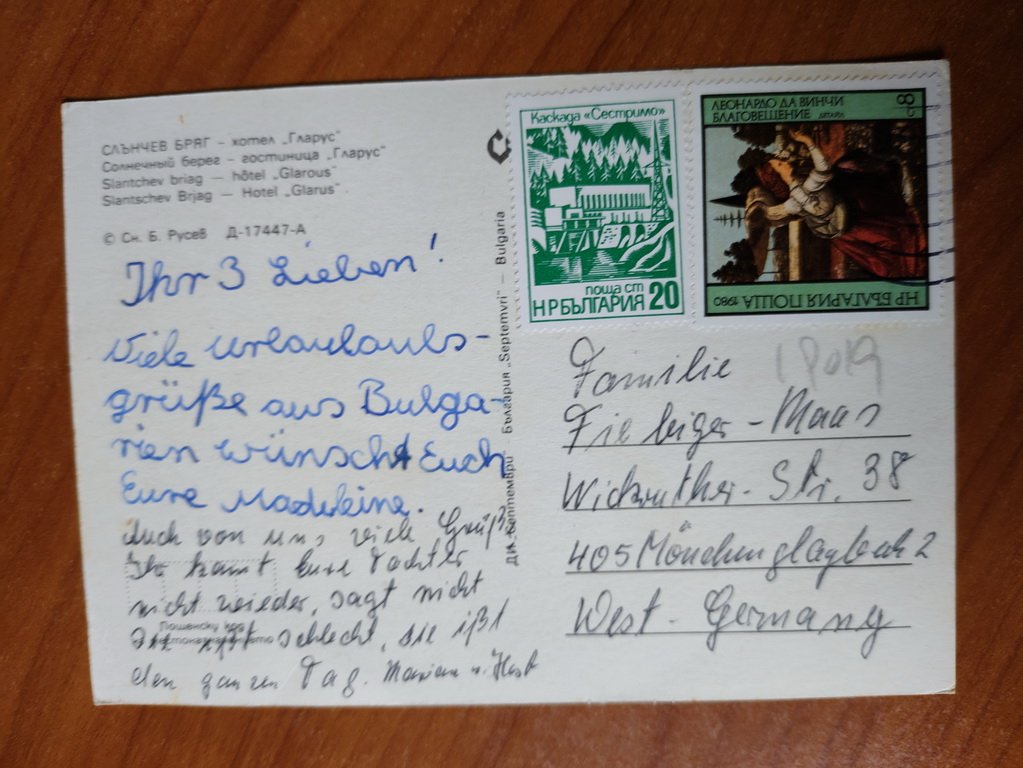 СЛЪНЧЕВ БРЯГ – хотел „Гларус"
Солнечный берег – гостиница „Гларус"
Slantchev briag — hôtel „Glarous"
Slantschev Brjag — Hotel „Glarus"
© Сн. Б. Русев Д-17447-А
Ihr 3 Lieben!
Viele Urlaulaubs-
grüße aus Bulga-
rien wünscht Euch
Eure Madeleine.
Auch von uns viele Grüße
Ihr kennt Eure Tochter
nicht wieder, sagt nicht
sie ißt schlecht, sie ißt
den ganzen Tag. Mariann u. Horst
ДИ „Септември" България „Septemvri" — Bulgaria
Каскада «Сестримо»
поща ст
НР БЪЛГАРИЯ 20
ЛЕОНАРДО ДА ВИНЧИ
БЛАГОВЕЩЕНИЕ ДЕТАЙЛ
8 ст
НР БЪЛГАРИЯ ПОЩА 1980
Familie
Fiebiger-Maas
Wickrather-Str. 38
405 Mönchengladbach 2
West-Germany